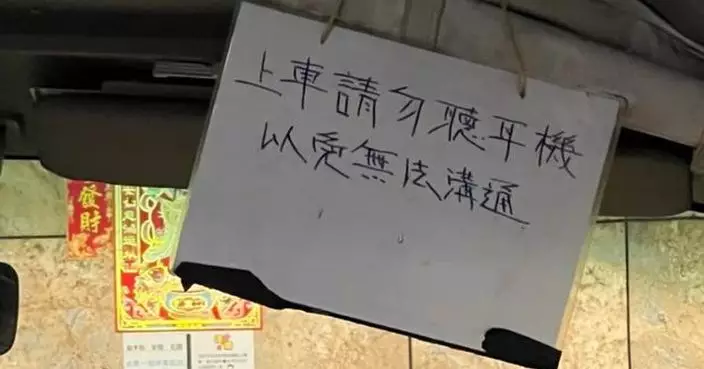 上車請勿聽耳機
以免無法溝通
發財